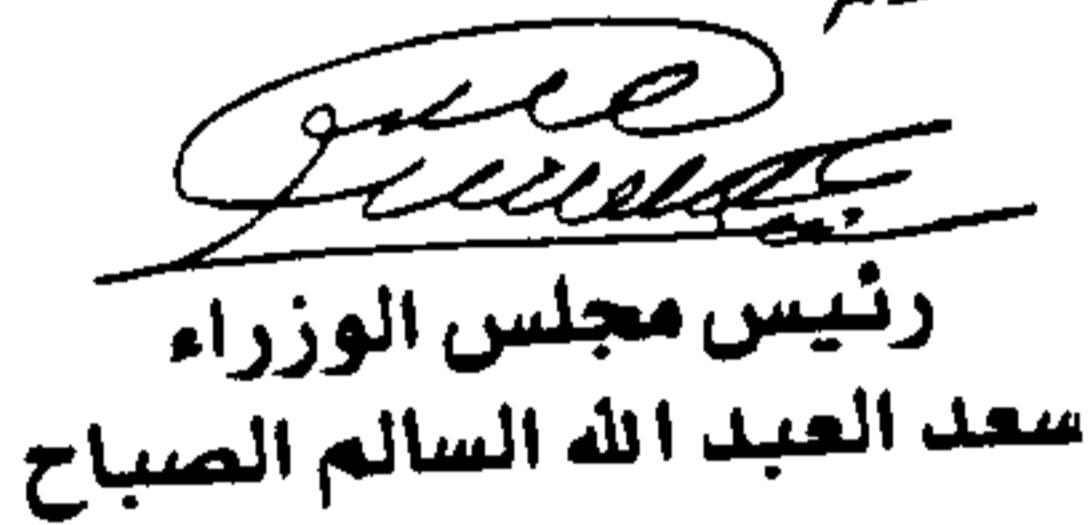 رئيس مجلس الوزراء
سعد العبد الله السالم الصباح